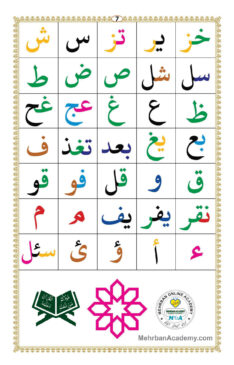 7
خز یر تز س ش
سل شل ص ض ط
ظ ع غ عج غح
بع یغ بعد تغذ ف
ق و قل فو قو
نقر یفر یف م م
ء أ ؤ ئ سئل
MEHRBAN ONLINE ACADEMY
MehrbanAcademy.com